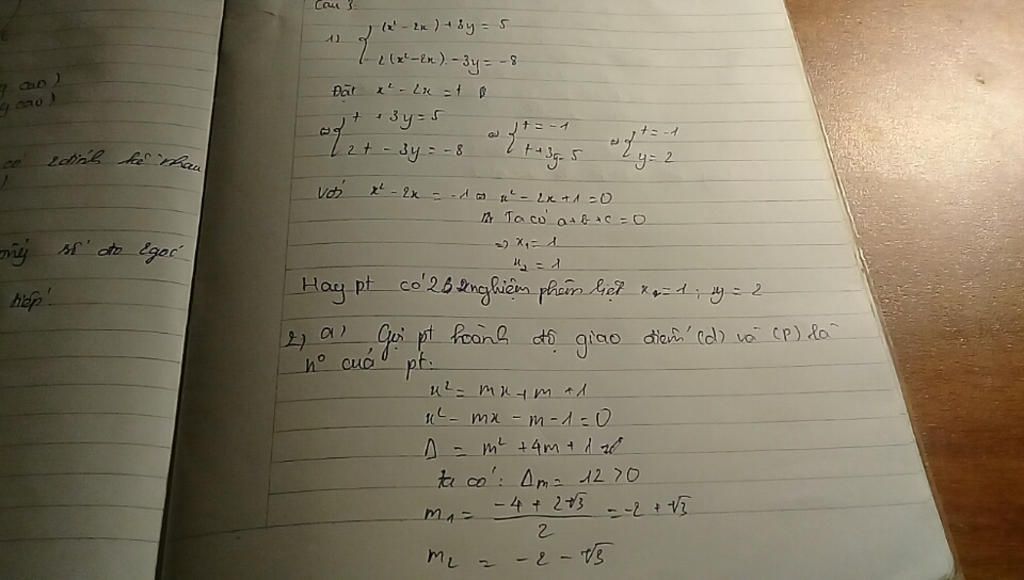 Câu 3:
1) { (x² - 2x) + 3y = 5
2(x² - 2x) - 3y = -8
Đặt x² - 2x = t
⇔ { t + 3y = 5 ⇔ { t = -1 ⇔ { t = -1
2t - 3y = -8 t + 3y = 5 y = 2
với x² - 2x = -1 ⇔ x² - 2x + 1 = 0
Ta có a + b + c = 0
=> x₁ = 1
x₂ = 1
Hay pt có 2 nghiệm phân biệt x = 1 ; y = 2
2) a) Gọi pt hoành độ giao điểm (d) và (P) là
n° của pt:
x² = mx + m + 1
x² - mx - m - 1 = 0
Δ = m² + 4m + 1
ta có: Δm = 12 > 0
m₁ = (-4 + 2√3)/2 = -2 + √3
m₂ = -2 - √3
cao)
cao)
có 2 đỉnh kề nhau
số đo 2 góc
tiếp.